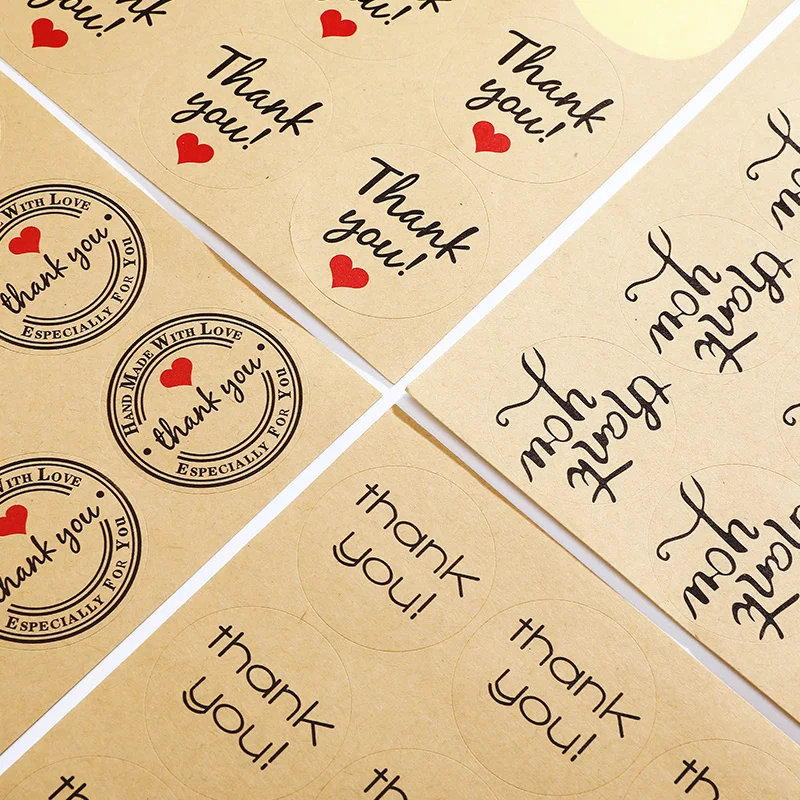 Thank
you!
Thank
you!
Thank
you!
Thank
you!
Thank
you!
WITH LOVE
thank you
ESPECIALLY FOR YOU
HAND MADE WITH LOVE
thank you
ESPECIALLY FOR YOU
WITH LOVE
thank you
ESPECIALLY FOR YOU
you
thank
you
thank
you
thank
you
thank
you!
thank
you!
thank
you!
th
thank
than